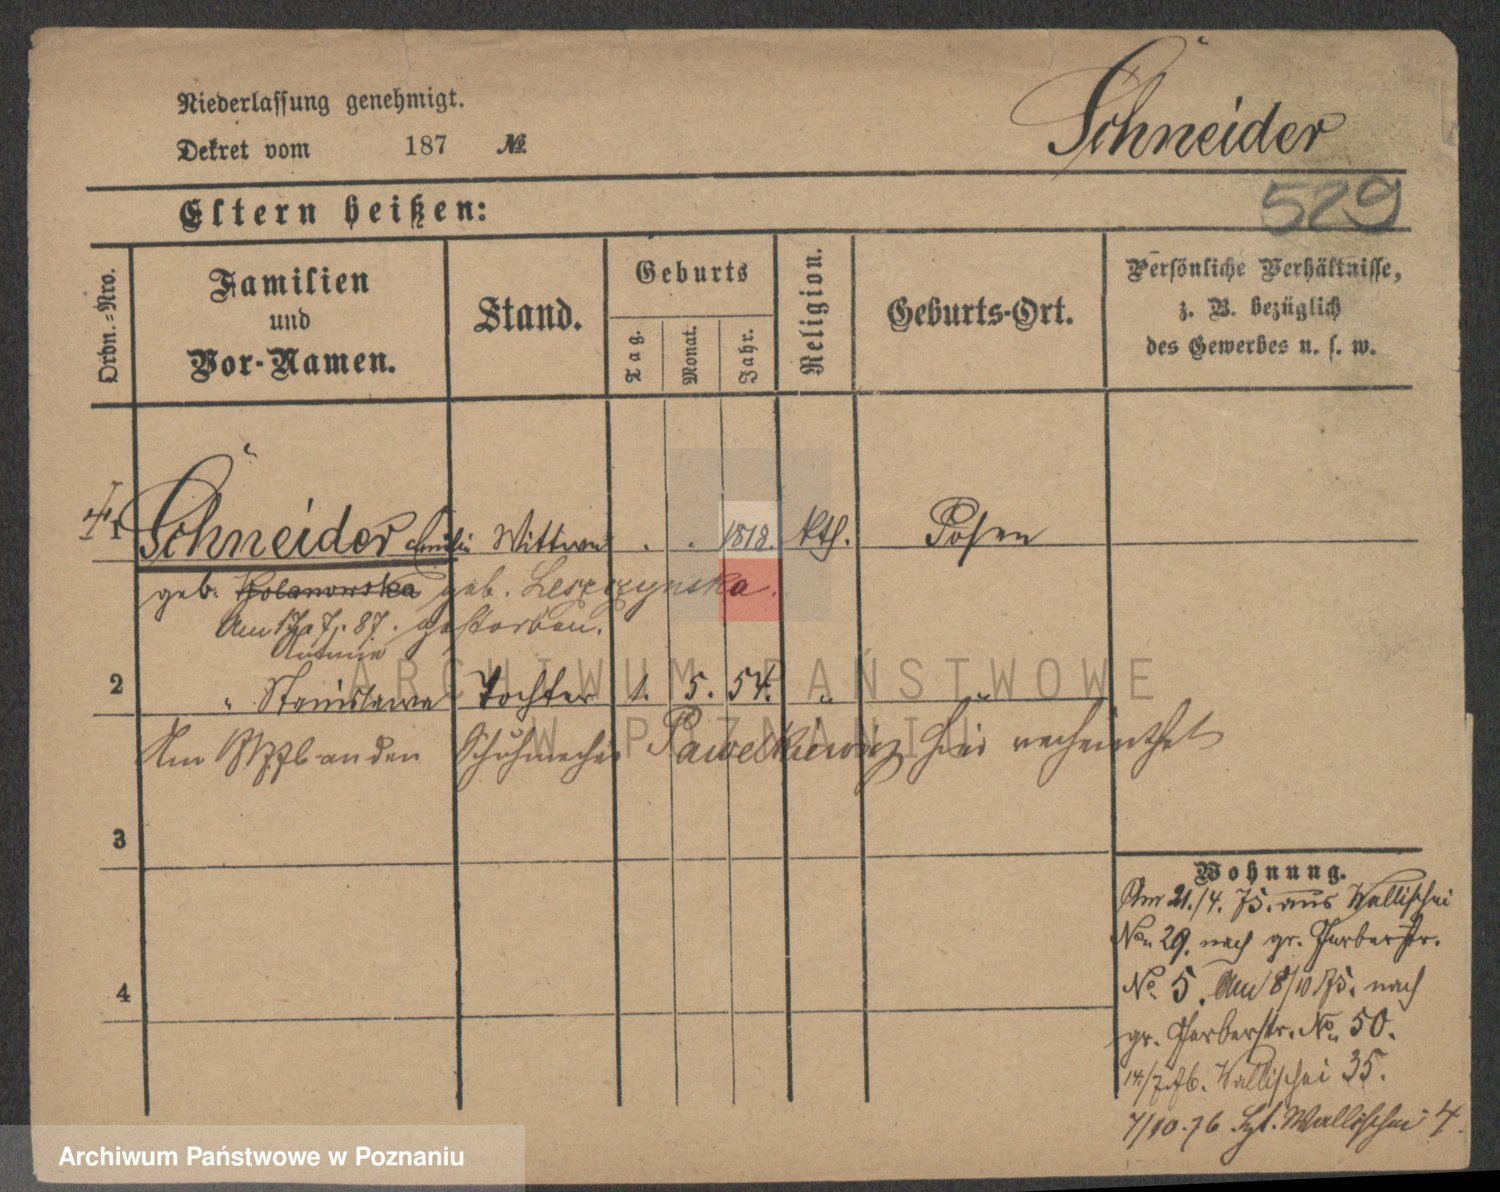 Niederlassung genehmigt.
Dekret vom 187 №
Schneider
529
Eltern heißen:
Ordn.-Nro.
Familien
und
Vor-Namen.
Stand.
Geburts
Tag.
Monat.
Jahr.
Religion.
Geburts-Ort.
Persönliche Verhältnisse,
z. B. bezüglich
des Gewerbes u. s. w.
1 Schneider Emilie Wittwe . . 1818. kth. Posen
geb. geb. Leszczynska.
Am 7. 87. gestorben.
2 " Stanislawa Tochter 1. 5. 54. " "
Am an den Schuhmacher Pawelkiewicz hier verheirathet
3
4
Wohnung.
Am 21./4. 75. aus Wallischei
No. 29. nach gr. Gerberstr.
No. 5. Am 8/10 75. nach
gr. Gerberstr. No. 50.
14/7. 76. Wallischei 35.
7/10. 76 Wallischei 4.
ARCHIWUM PAŃSTWOWE
W POZNANIU
Archiwum Państwowe w Poznaniu